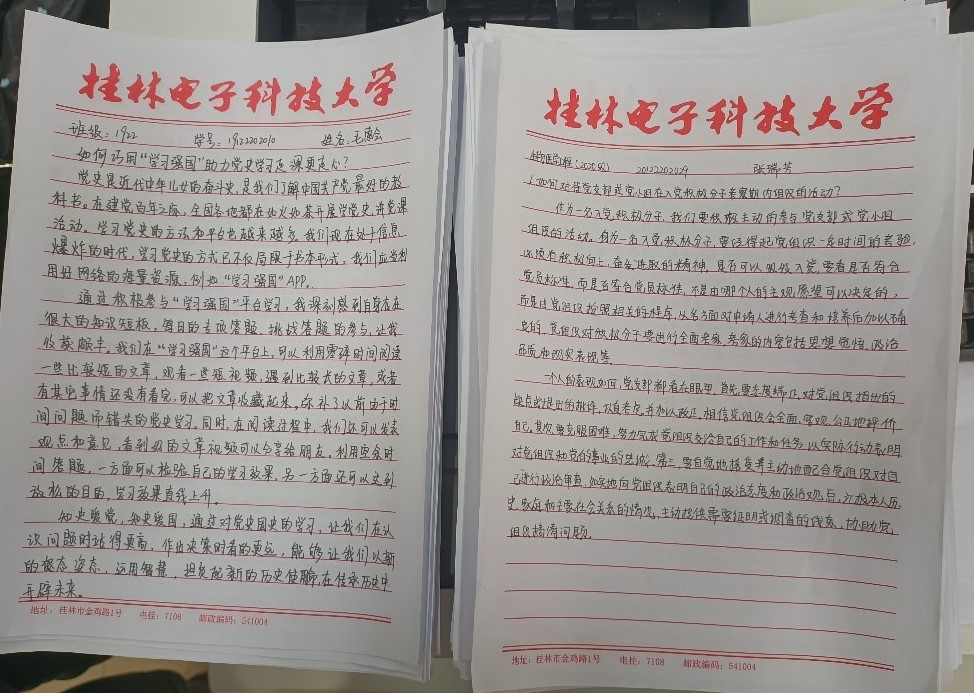 桂林电子科技大学
班级：1922 学号：1922202010 姓名：毛惠会
如何巧用“学习强国”助力党史学习走深更走心？
党史是近代中华儿女的奋斗史，是我们了解中国共产党最好的教
科书。在建党百年之际，全国各地都在如火如荼开展学党史，讲党课
活动。学习党史的方法和平台也越来越多。我们现在处于信息
爆炸的时代，学习党史的方式已不仅局限于书本形式，我们应当利
用好网络的海量资源，例如“学习强国”APP。
通过积极参与“学习强国”平台学习，我深刻感到自身存在
很大的知识短板，每日的专项答题、挑战答题的参与，让我
收获颇丰。我们在“学习强国”这个平台上，可以利用零碎时间阅读
一些比较短的文章，观看一些短视频，遇到比较长的文章，或者
有其它事情还没有看完，可以把文章收藏起来，弥补了以前由于时
间问题而错失的党史学习。同时，在阅读过程中，我们还可以发表
观点和意见，看到好的文章视频可以分享给朋友，利用空余时
间答题，一方面可以检验自己的学习效果，另一方面还可以达到
放松的目的，学习效果直线上升。
知史爱党，知史爱国，通过对党史国史的学习，让我们在认
识问题时站得更高，作出决策时看的更远，能够让我们以新
的姿态，运用智慧，担负起新的历史使命，在传承历史中
开辟未来。
地址：桂林市金鸡路1号 电挂：7108 邮政编码：541004
桂林电子科技大学
生物医学工程 2012202029 张瑞芳
1.如何对待党支部或党小组在入党积极分子考察期内组织的活动？
作为一名入党积极分子，我们要积极主动的参与党支部或党小组
组织的活动。身为一名入党积极分子，要经得起党组织一段时间的考验，
必须有积极向上，奋发进取的精神，是否可以吸收入党，要看是否符合
党员标准，而是否符合党员标准，不是由哪个人的主观愿望可以决定的，
而是由党组织按照相关的程序，从各方面对申请人进行考查和培养后加以确
定的，党组织对积极分子要进行全面考察，考察的内容包括思想觉悟，政治
品质和现实表现等。
一个人的表现如何，党支部都看在眼里，首先，要态度端正，对党组织指出的
缺点或提出的批评，认真考虑，并加以改正，相信党组织会全面、客观、公正地评价
自己，其次，要克服困难，努力完成党组织交给自己的工作和任务，以实际行动表明
对党组织和党的事业的忠诚，第三，要自觉地接受并主动地配合党组织对自
己进行政治审查，如实地向党组织表明自己的政治态度和政治观点，介绍本人历
史、家庭和主要社会关系的情况，主动提供需要证明或调查的线索，协助党
组织搞清问题。
地址：桂林市金鸡路1号 电挂：7108 邮政编码：541004